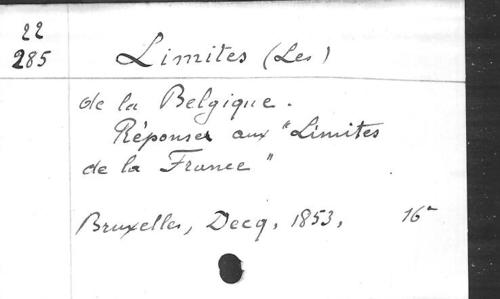 22
285
Limites (Les)
de la Belgique.
Réponses aux "Limites
de la France"
Bruxelles, Decq, 1853, 16°